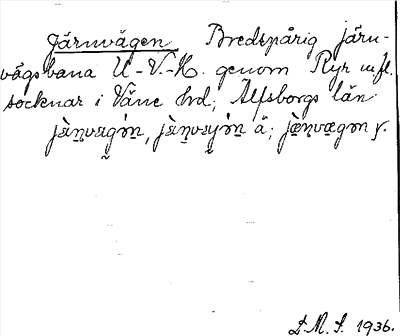 Järnvägen Bredspårig järn-
vägsbana U-V.-H. genom Ryr m.fl.
socknar i Väne hrd; Älfsborgs län
jæ̀ṇvægən, jæ̀ṇvæjən ä; jæ̀ṇvægon y.
D.M.S. 1936.